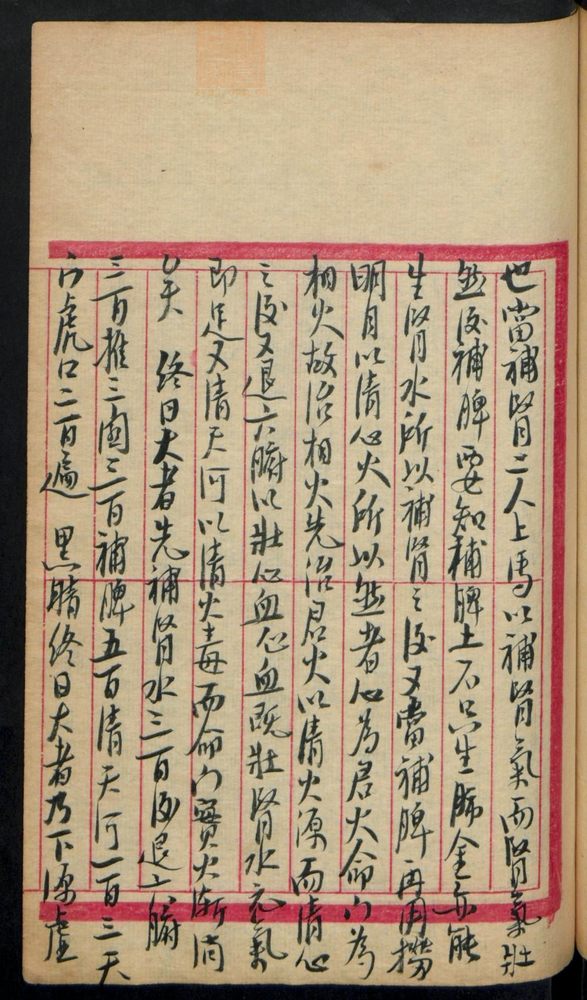 也當補腎二人上馬以補腎氣而腎氣壯
然後補脾要知補脾土不只生肺金亦能
生腎水所以補腎之後又當補脾再用撈
明月以清心火所以然者心為君火命門為
相火故治相火先治君火以清火源而清心
之後又退六腑以壯心血心血既壯腎水元氣
即足又清天河以清火毒而命門實火漸消
矣 終日大者先補腎水三百後退六腑
三百推三関三百補脾五百清天河一百三天
門虎口二百遍 黑睛終日大者乃下源虛